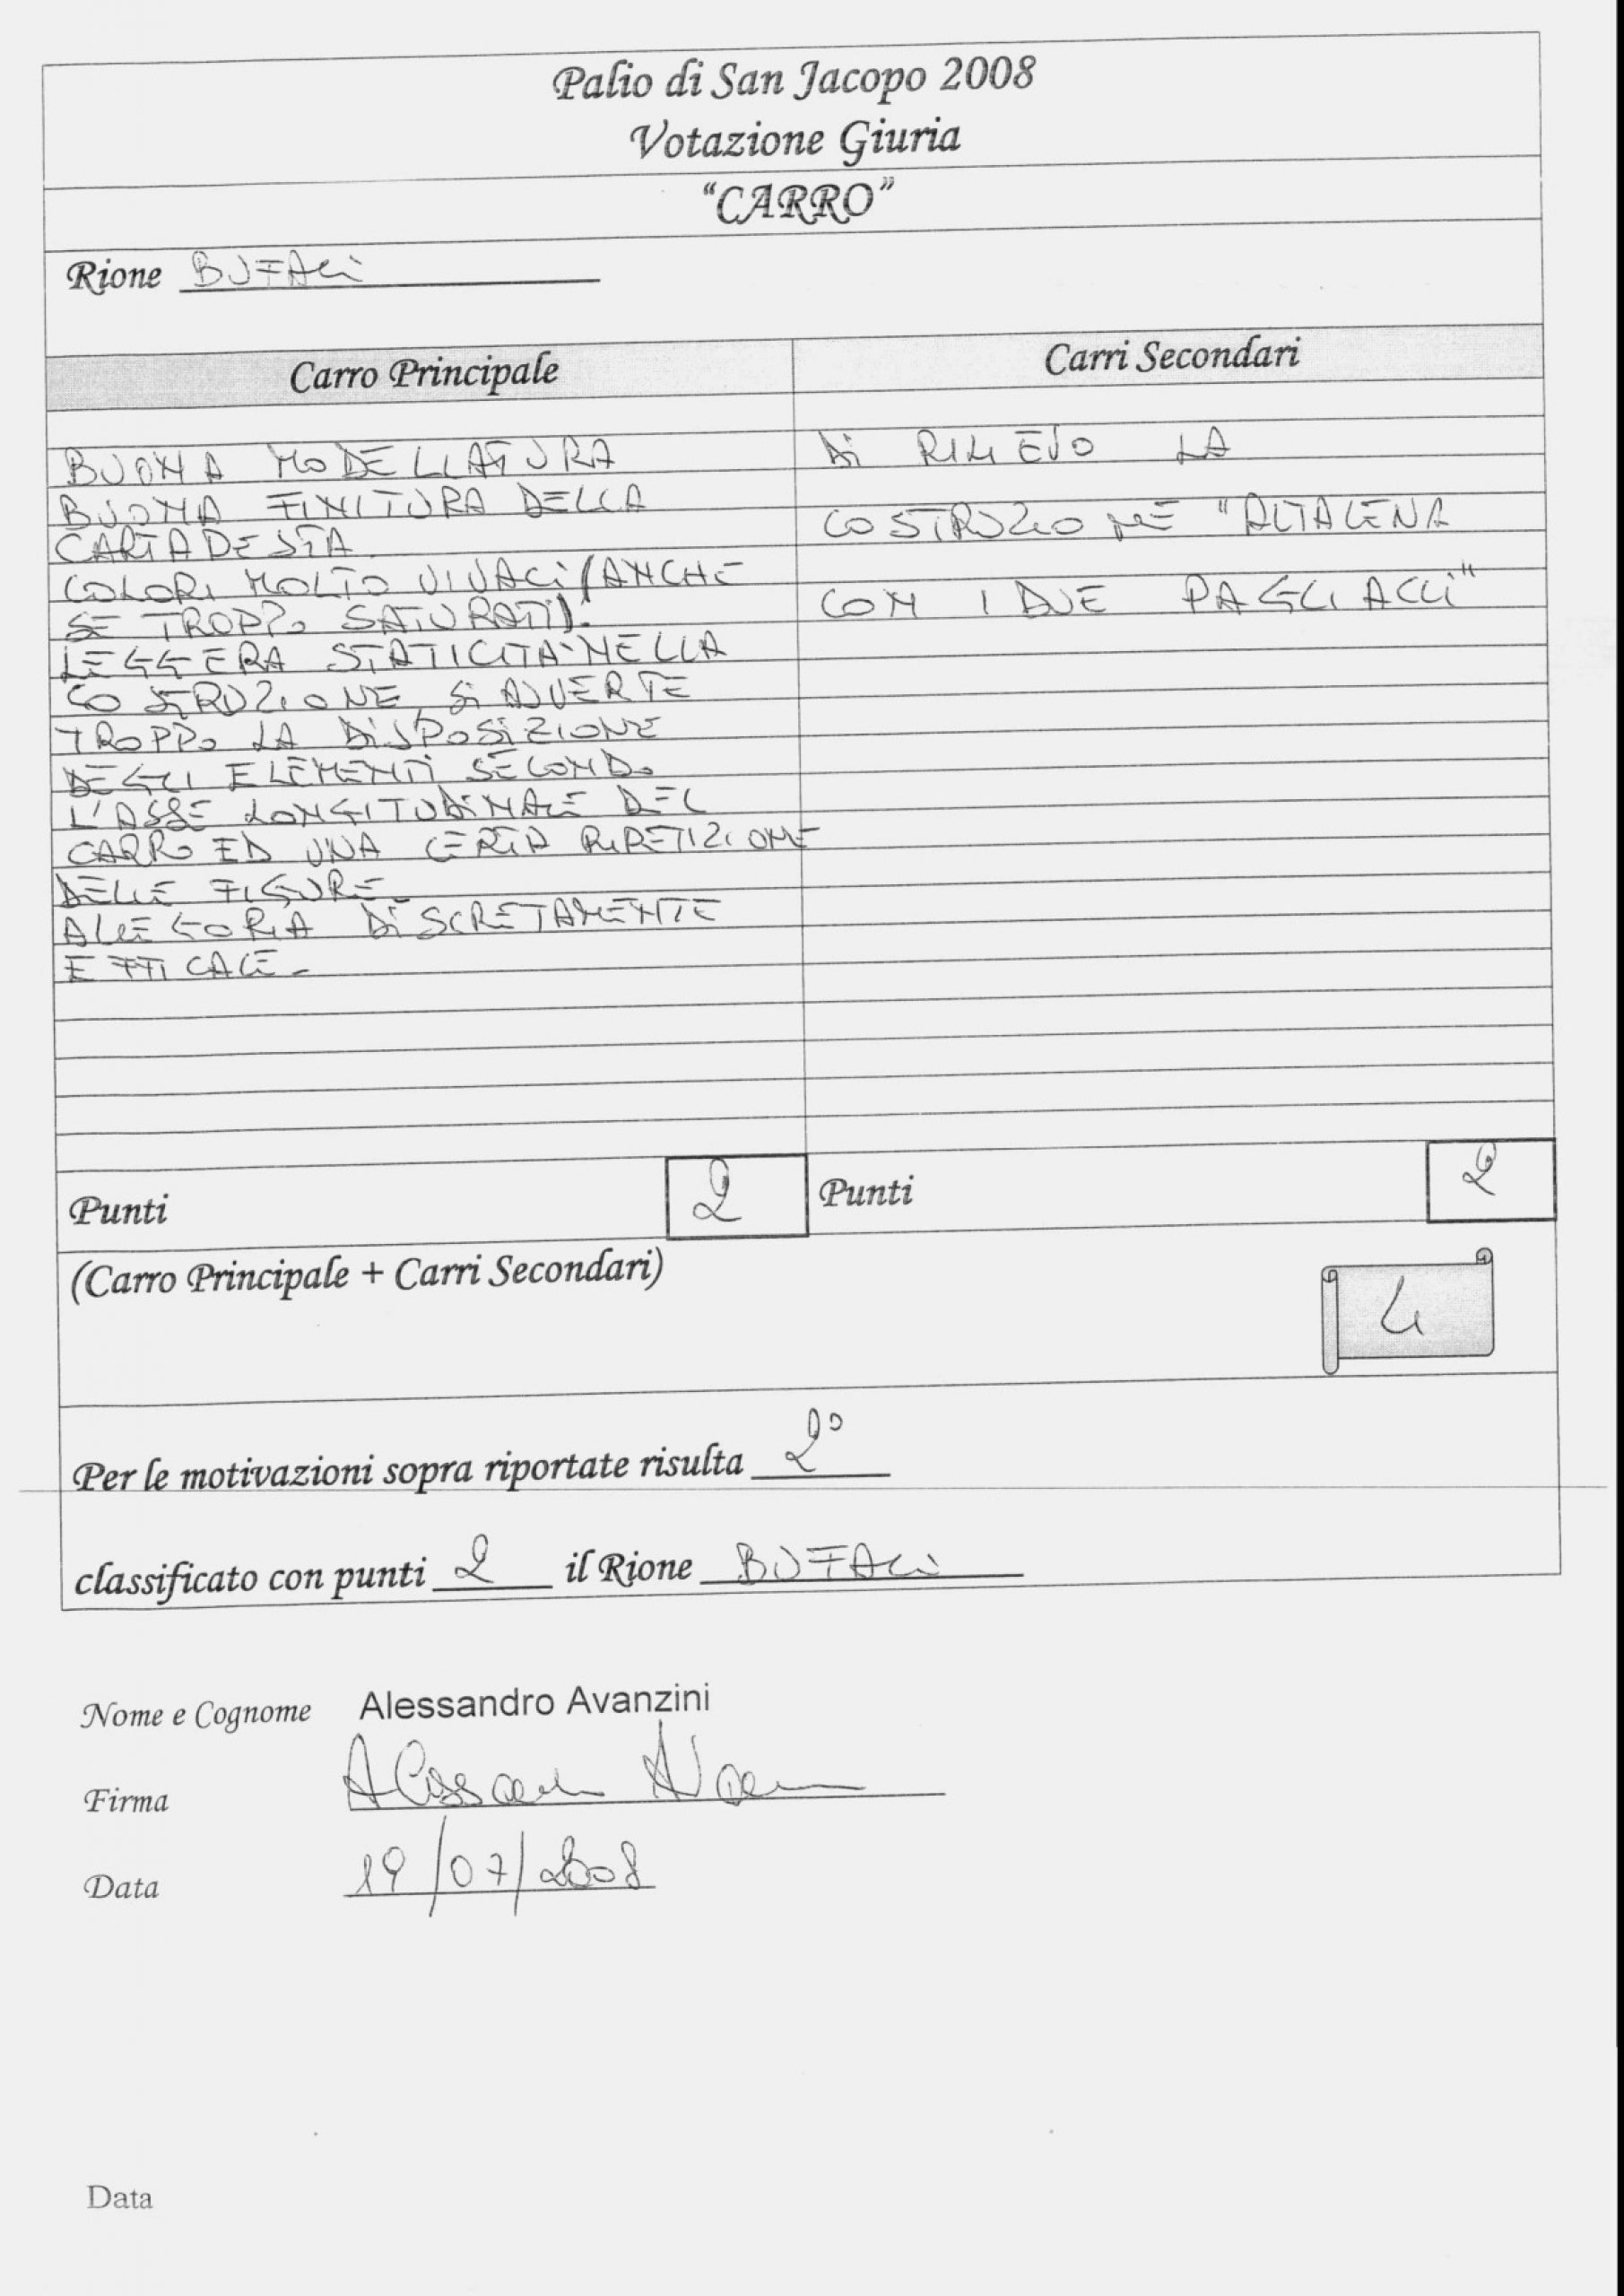 Palio di San Jacopo 2008
Votazione Giuria
"CARRO"
Rione BUFALI
Carro Principale
BUONA MODELLATURA
BUONA FINITURA DELLA
CARTAPESTA.
COLORI MOLTO VIVACI (ANCHE
SE TROPPO SATURATI).
LEGGERA STATICITA' NELLA
COSTRUZIONE, SI AVVERTE
TROPPO LA DISPOSIZIONE
DEGLI ELEMENTI SECONDO
L'ASSE LONGITUDINALE DEL
CARRO ED UNA CERTA RIPETIZIONE
DELLE FIGURE.
ALLEGORIA DISCRETAMENTE
EFFICACE.
Carri Secondari
DI RILIEVO LA
COSTRUZIONE "ALTALENA
CON I DUE PAGLIACCI"
Punti 2
Punti 2
(Carro Principale + Carri Secondari) 4
Per le motivazioni sopra riportate risulta 2°
classificato con punti 2 il Rione BUFALI
Nome e Cognome Alessandro Avanzini
Firma Alessandro Avanzini
Data 19/07/2008
Data